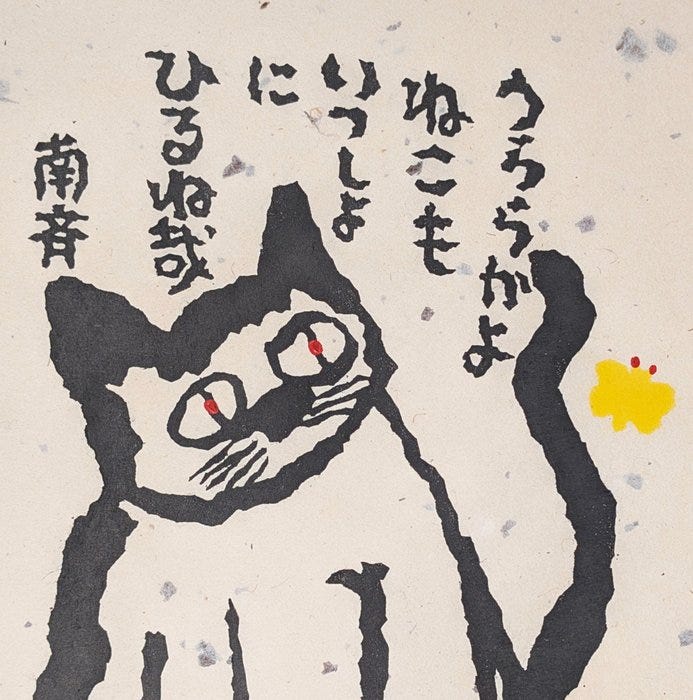 うららかよ
ねこも
いっしょ
に
ひるね哉
南斉